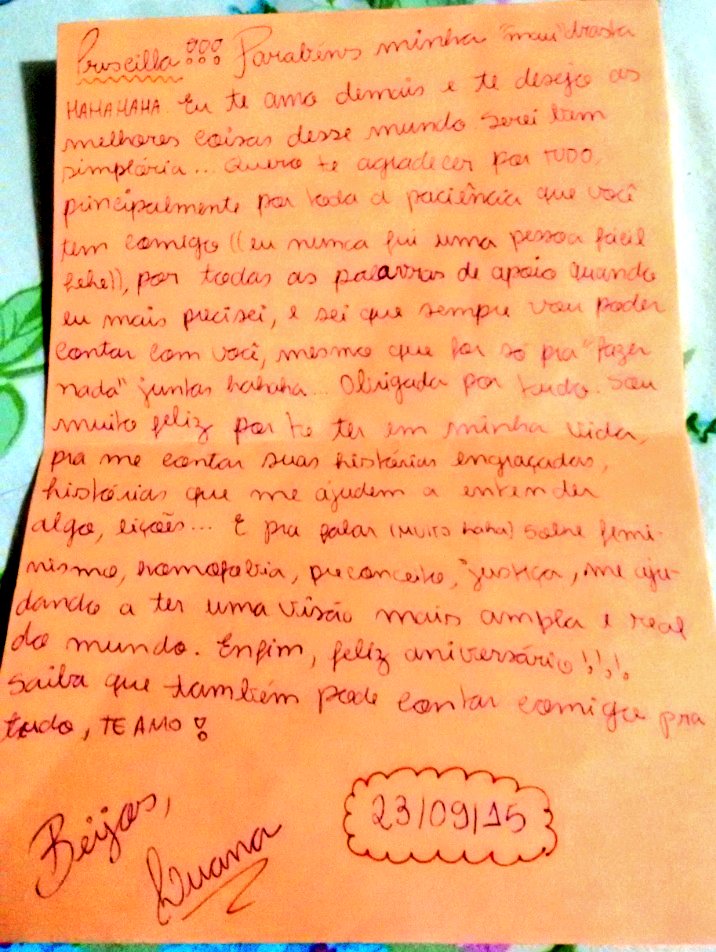 Priscilla!!! Parabéns minha "mau"drasta
HAHAHAHA. Eu te amo demais e te desejo as
melhores coisas desse mundo. Serei bem
simplória... Quero te agradecer por TUDO,
principalmente por toda a paciência que você
tem comigo ((eu nunca fui uma pessoa fácil
hehe)), por todas as palavras de apoio quando
eu mais precisei, e sei que sempre vou poder
contar com você, mesmo que for só pra "fazer
nada" juntas hahaha... Obrigada por tudo. Sou
muito feliz por te ter em minha vida,
pra me contar suas histórias engraçadas,
histórias que me ajudem a entender
algo, lições... E pra falar (MUITO haha) sobre femi-
nismo, homofobia, preconceito, justiça, me aju-
dando a ter uma visão mais ampla e real
do mundo. Enfim, feliz aniversário!!!
Saiba que também pode contar comigo pra
tudo, TE AMO!
Beijos,
Luana
23/09/15